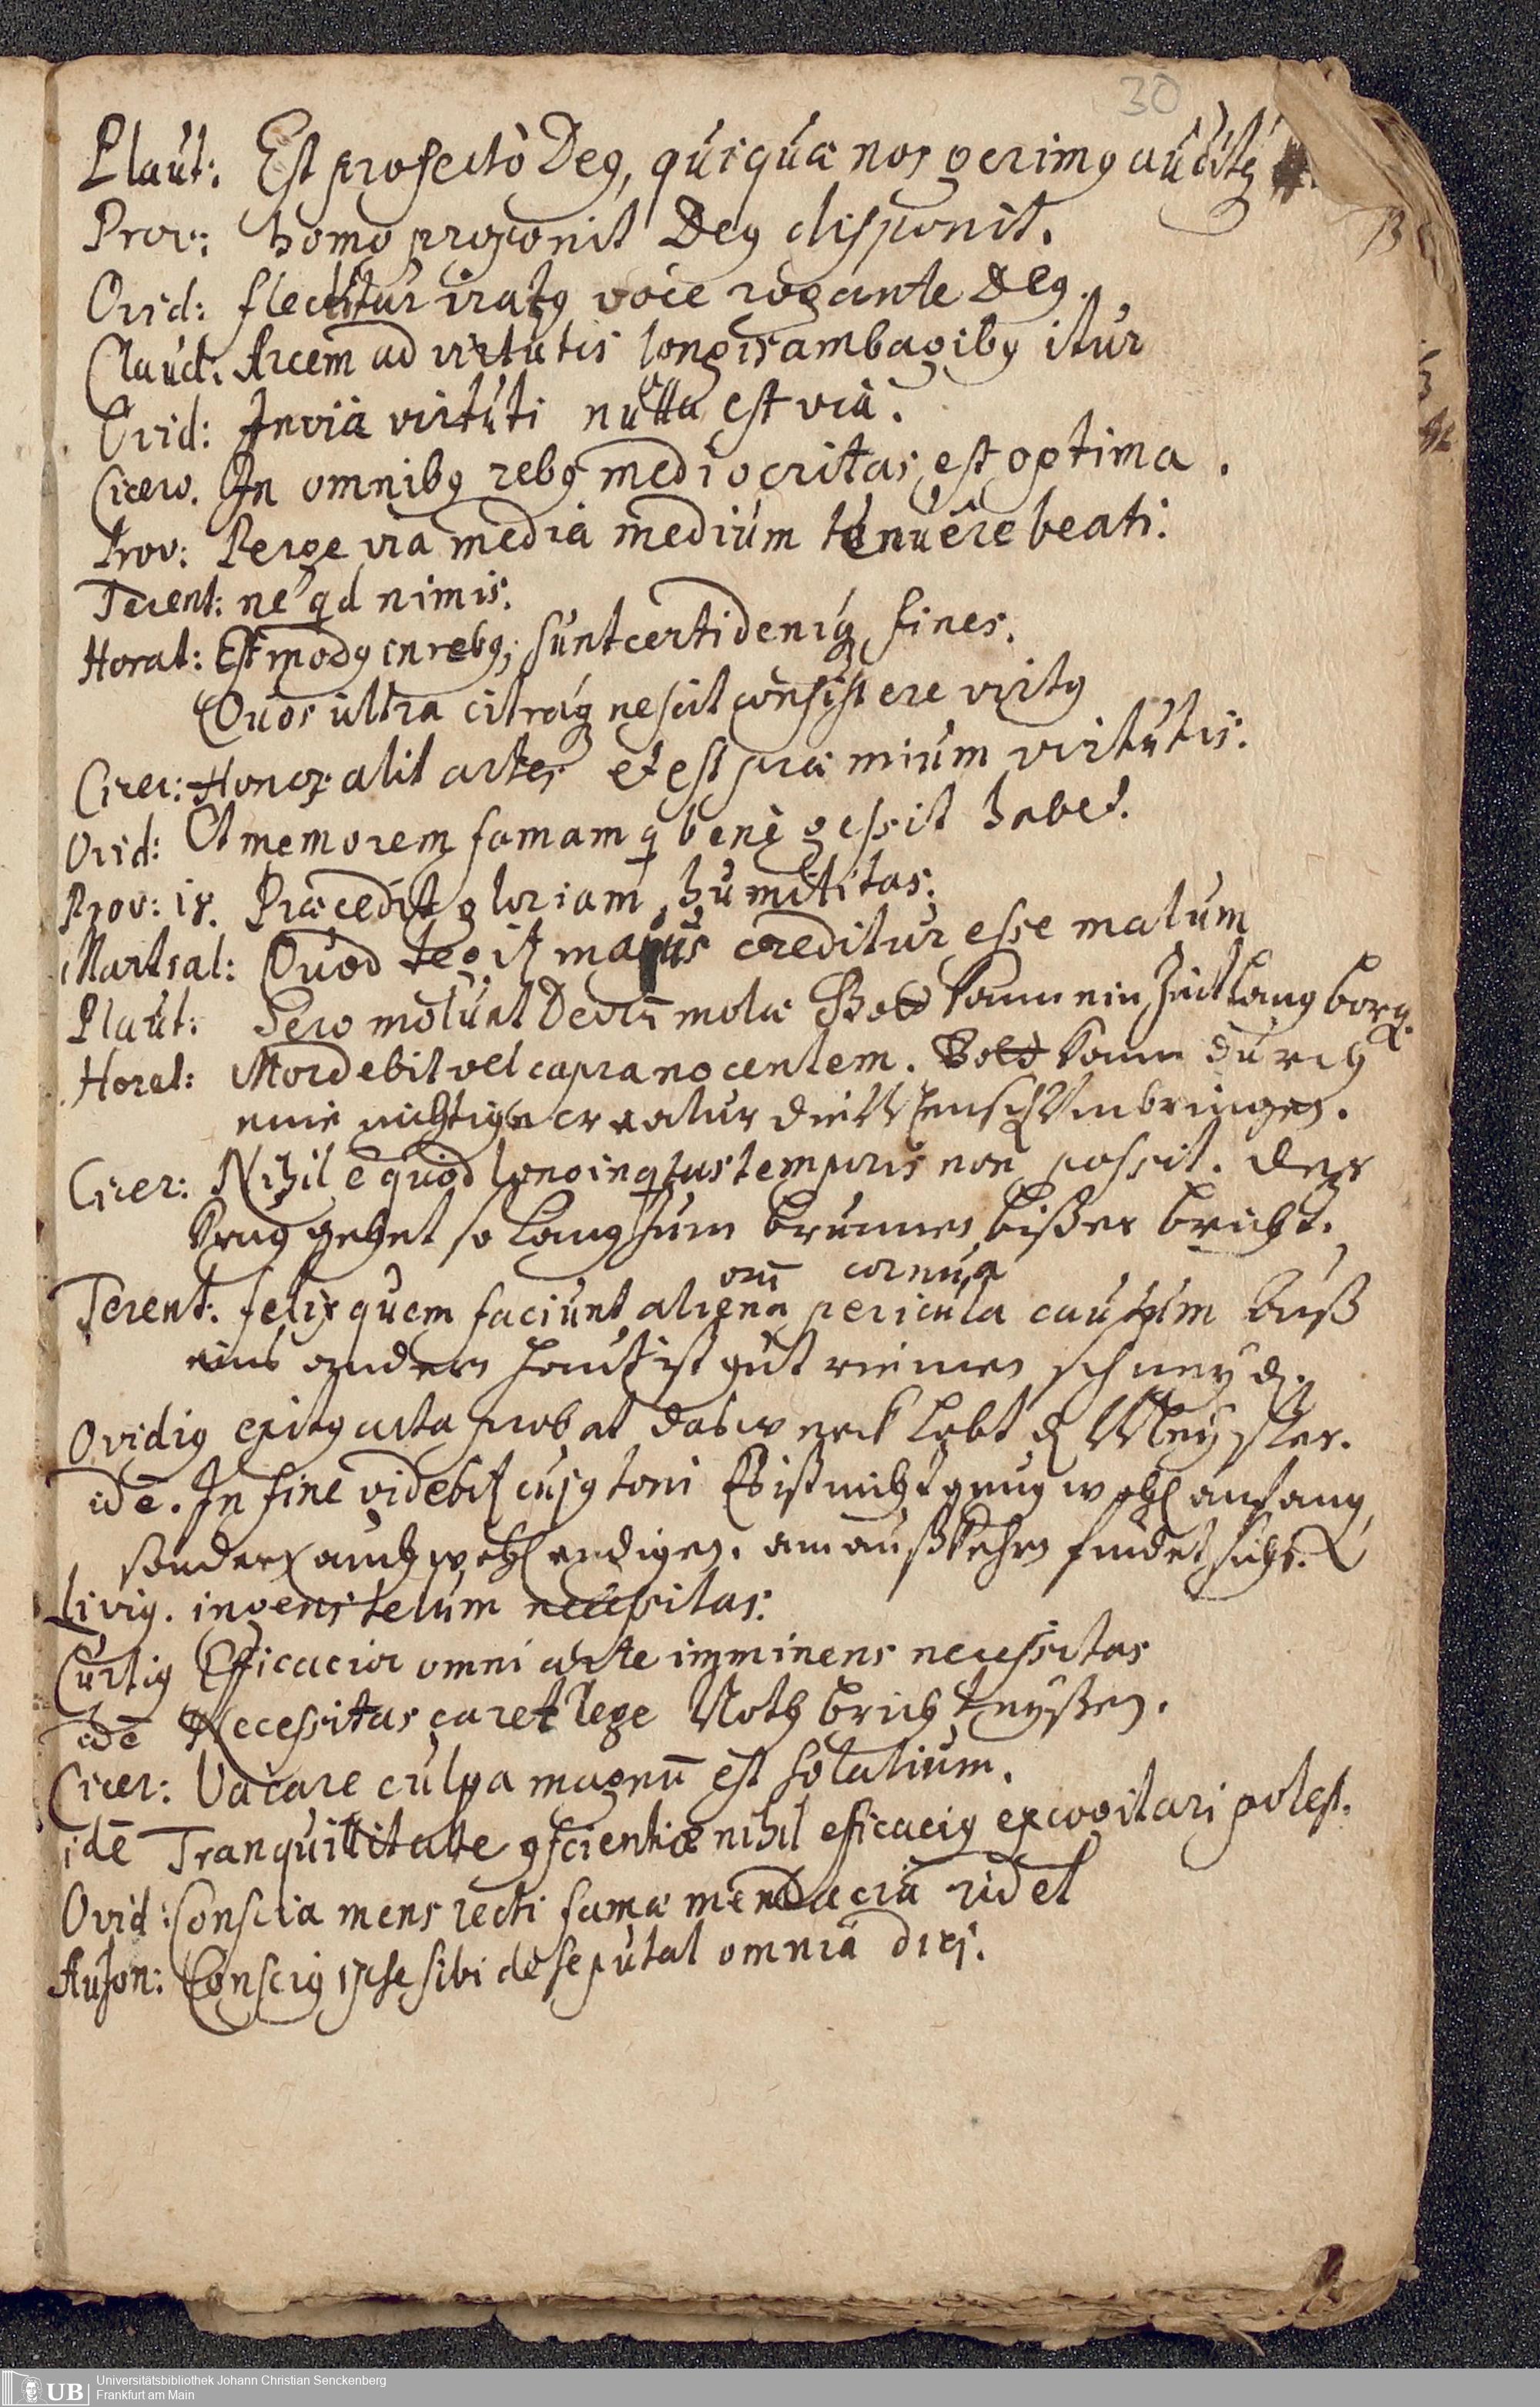 30
Plaut: Est profectò Deꝰ, qui quæ nos gerimꝰ auditqꝫ
Prov: homo proponit Deꝰ disponit.
Ovid: flectitur iratꝰ voce rogante Deꝰ.
Claud: Arcem ad virtutis longis ambagibꝰ itur
Ovid: Invia virtuti nulla est via.
Cicero. In omnibꝰ rebꝰ mediocritas est optima.
Prov: Perge via media medium tenuêre beati.
Terent: ne qd nimis.
Horat: Est modꝰ in rebꝰ, sunt certi deniqꝫ fines.
Quos ultra citráqꝫ nescit consistere virtꝰ
Cicer: Honor alit artes et est præmium virtutis.
Ovid: Et memorem famam q bene gessit habet.
Prov: 18. Præcedit gloriam humilitas.
Martial: Quod tegit maius creditur esse malum
Plaut: Sero molunt Deorū molæ Gott kann ein Zeit lang borgē
Horat: Mordebit vel capra nocentem. Gott kann durch
eine nichtige creatur die Mensch umbringen.
Cicer: Nihil ē quod longinqtas temporis non possit. der
Krug gehet so lang zum brunnen bißer bricht.
orū cornua
Terent: felix quem faciunt aliena pericula cautum Auß
eins andern haut ist gut riemen schneyd.
Ovidiꝰ exitꝰ acta probat das werck lobt d Meyster.
idē. In fine videbit cujꝰ toni Es ist nicht gnug wohl anfang,
sondern auch wohl endigen. am außkehrn findet sichs.
Liviꝰ. ingens telum necessitas.
Curtiꝰ Efficacior omni arte imminens necessitas
idē Necessitas caret lege Noth bricht eyßen.
Cicer: Vacare culpa magnū est solatium.
idē Tranquillitate ꝯscientiæ nihil eficaciꝰ excogitari potest.
Ovid: Conscia mens recti famæ mendacia ridet
Auson: Consciꝰ ipse sibi de se putat omnia dici.
UB Universitätsbibliothek Johann Christian Senckenberg
Frankfurt am Main